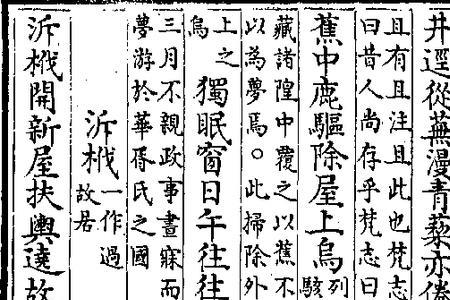 井逕從蕪漫青藜亦倦
且有且注且此也梵志
曰昔人尚存乎梵志曰
蕉中鹿驅除屋上烏列
駭
藏諸隍中覆之以蕉不
以為夢焉○此掃除外
上之
烏
獨眠窗日午往往
三月不親政事晝寐而
夢游於華胥氏之國
泝栰一作過
故居
泝栰開新屋扶輿遶故